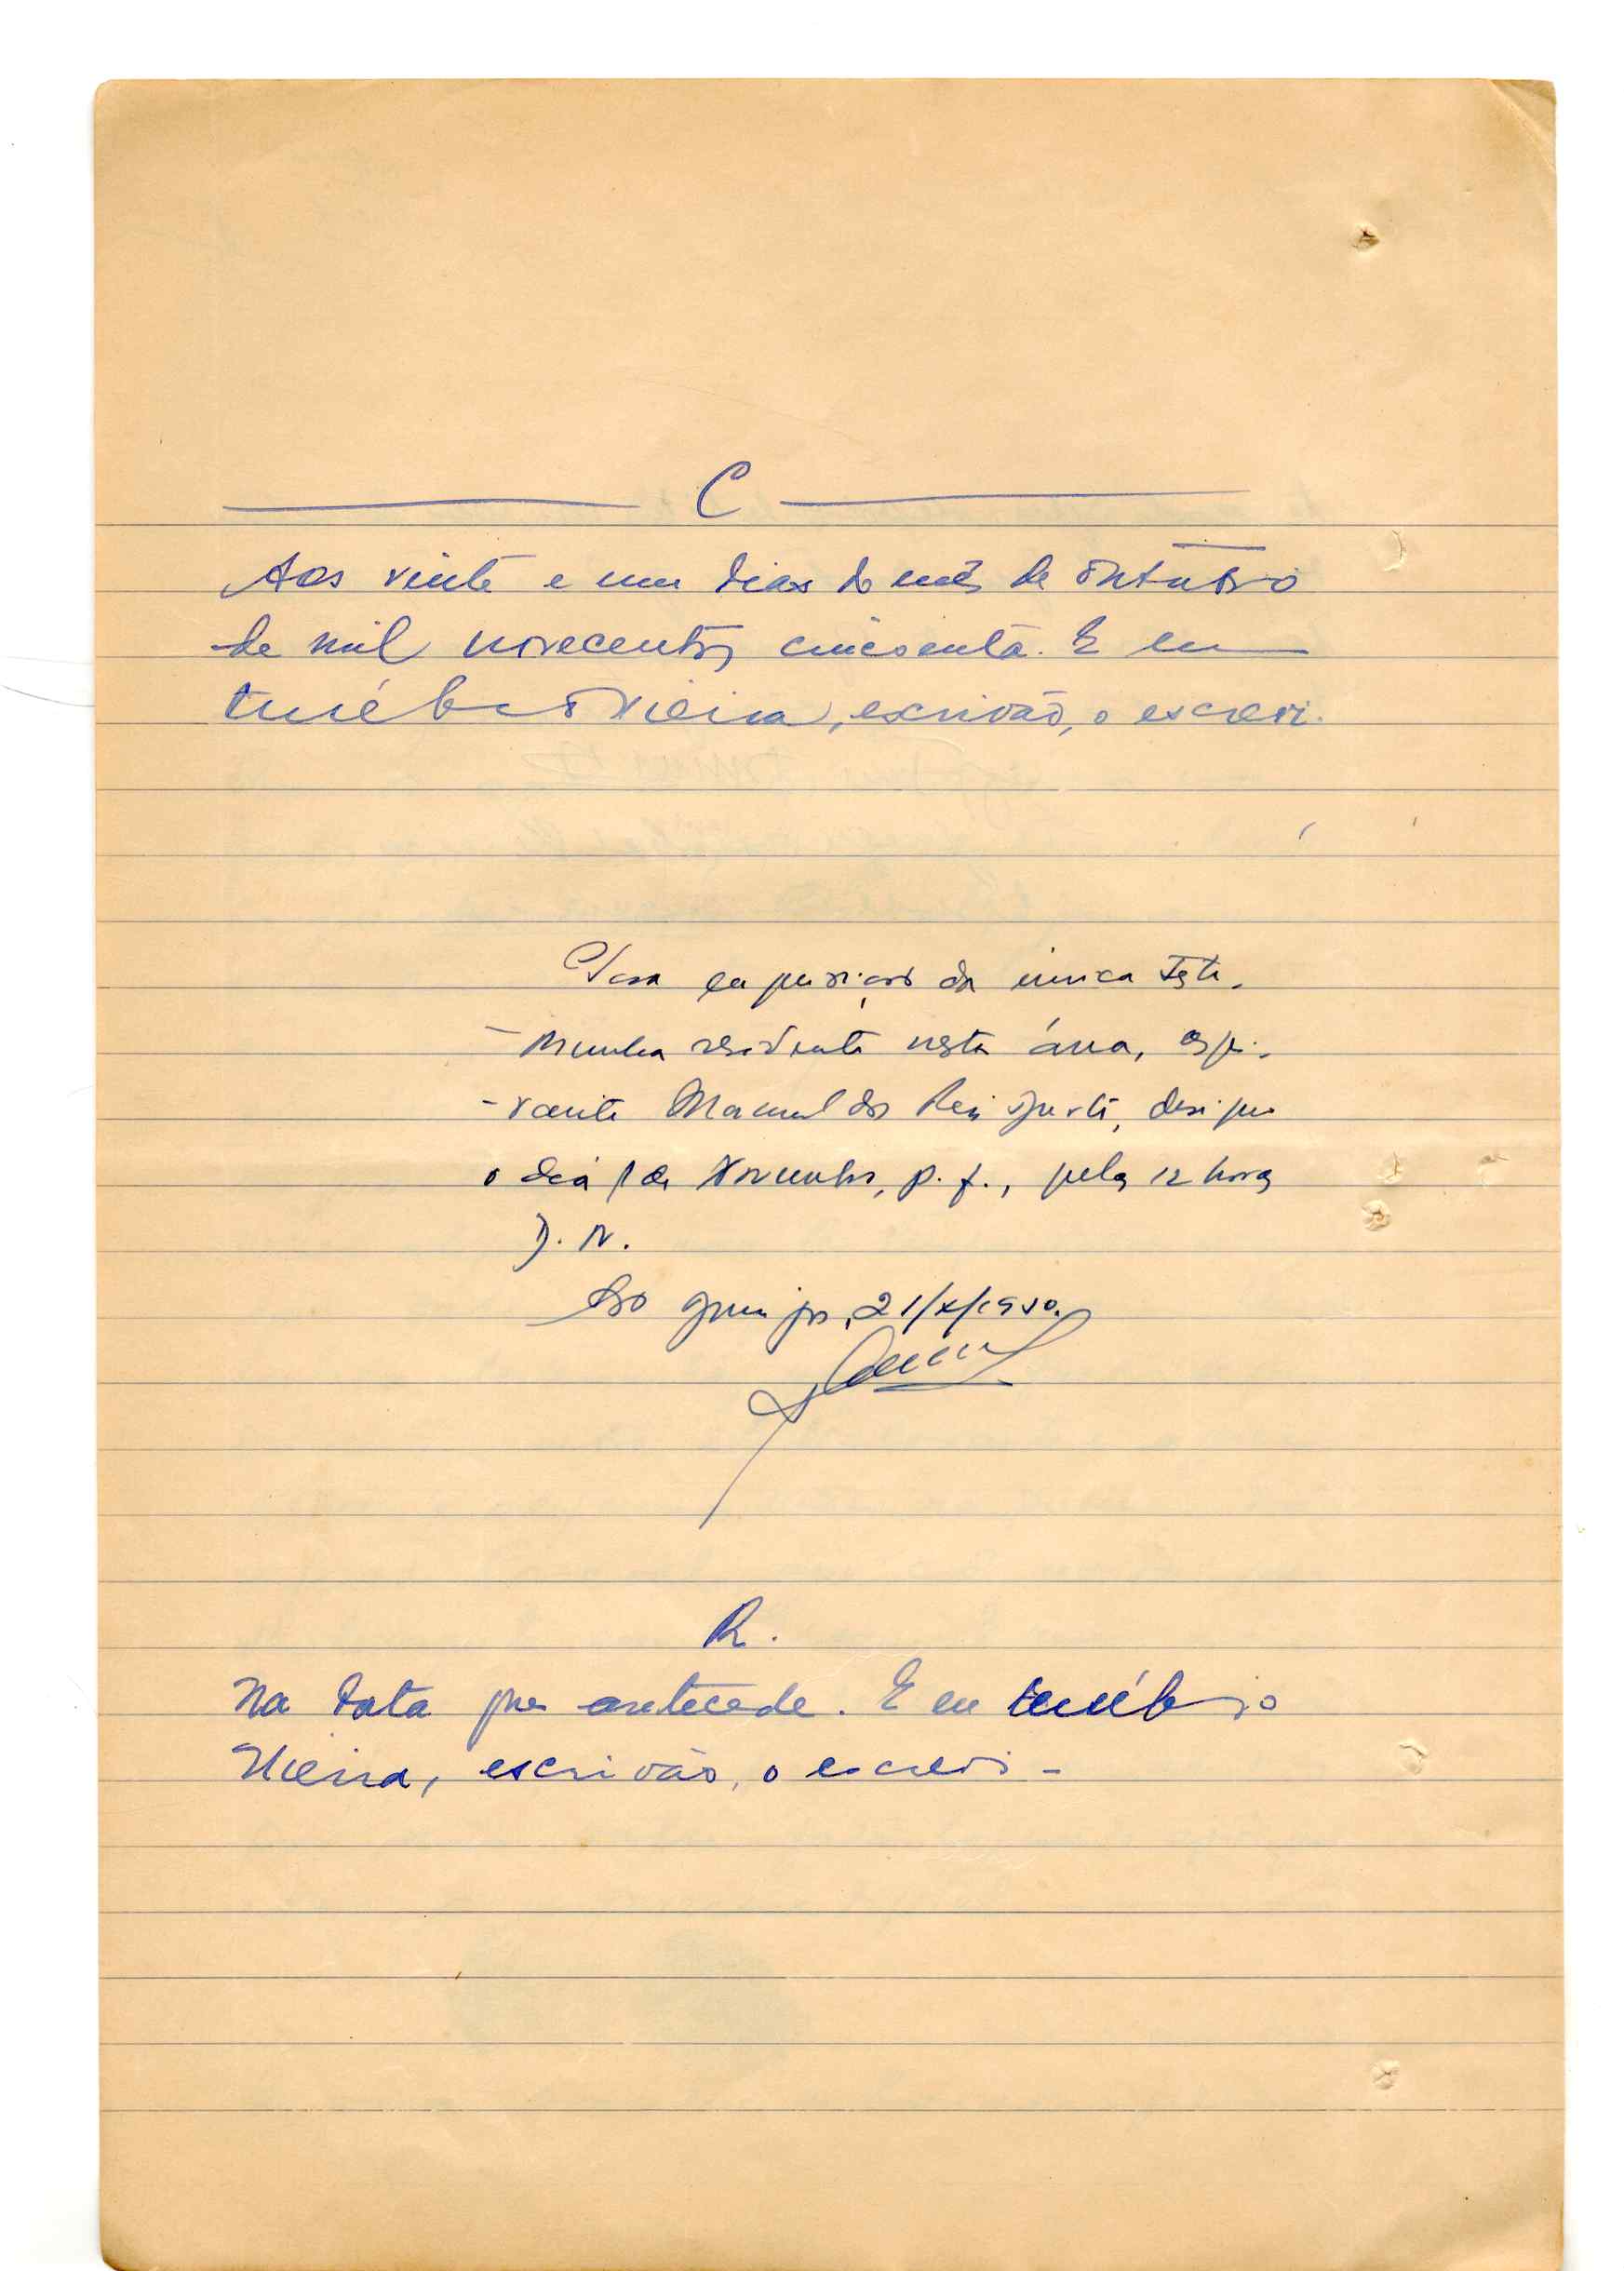 C
Aos vinte e um dias do mês de Outubro
de mil novecentos cincoenta. E eu
Eusébio Vieira, escrivão, o escrevi.
Para da única teste-
-munha residente nesta área,
Manuel dos Reis
o dia de Novembro, p. f., pelas 12 horas
D. N.
21/X/1950.
R.
Na data que antecede. E eu Eusébio
Vieira, escrivão, o escrevi -